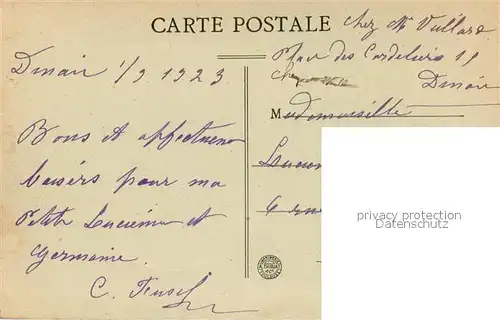 CARTE POSTALE
chez Mr Vullard
Place des Cordeliers 11
Dinan
Dinan 1/9 1923
Mademoiselle
Bons et affectueux
baisers pour ma
Petite Lucienne et
Germaine.
C.
6 rue
privacy protection
Datenschutz